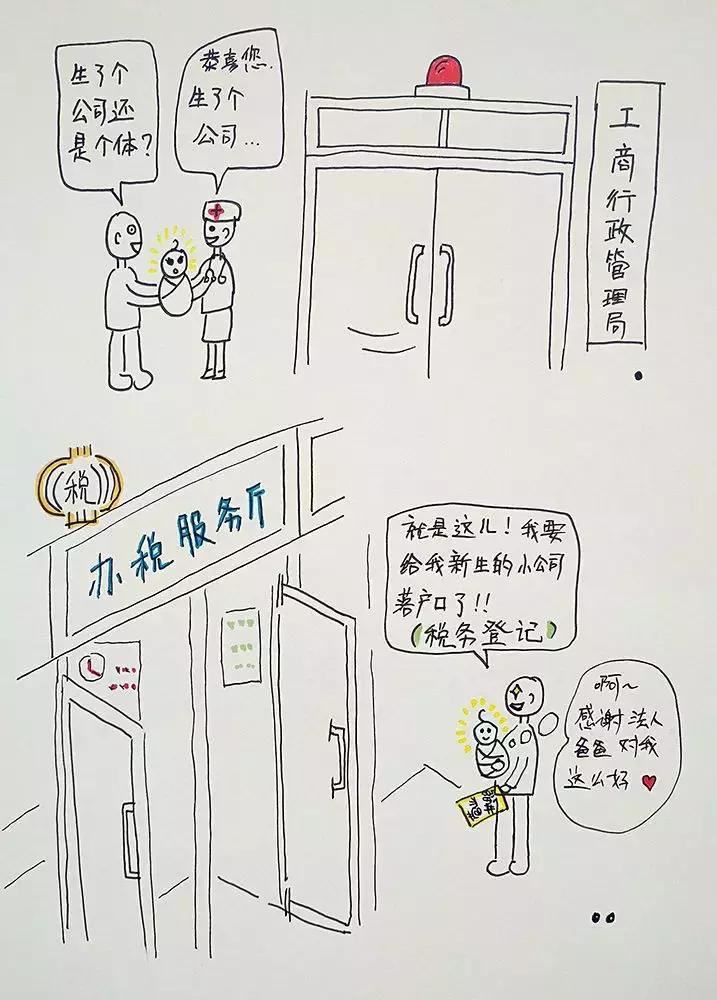 生了个
公司还
是个体？
恭喜您.
生了个
公司...
工商行政管理局
税
办税服务厅
就是这儿！我要
给我新生的小公司
落户口了！！
(税务登记)
啊～
感谢法人
爸爸对我
这么好